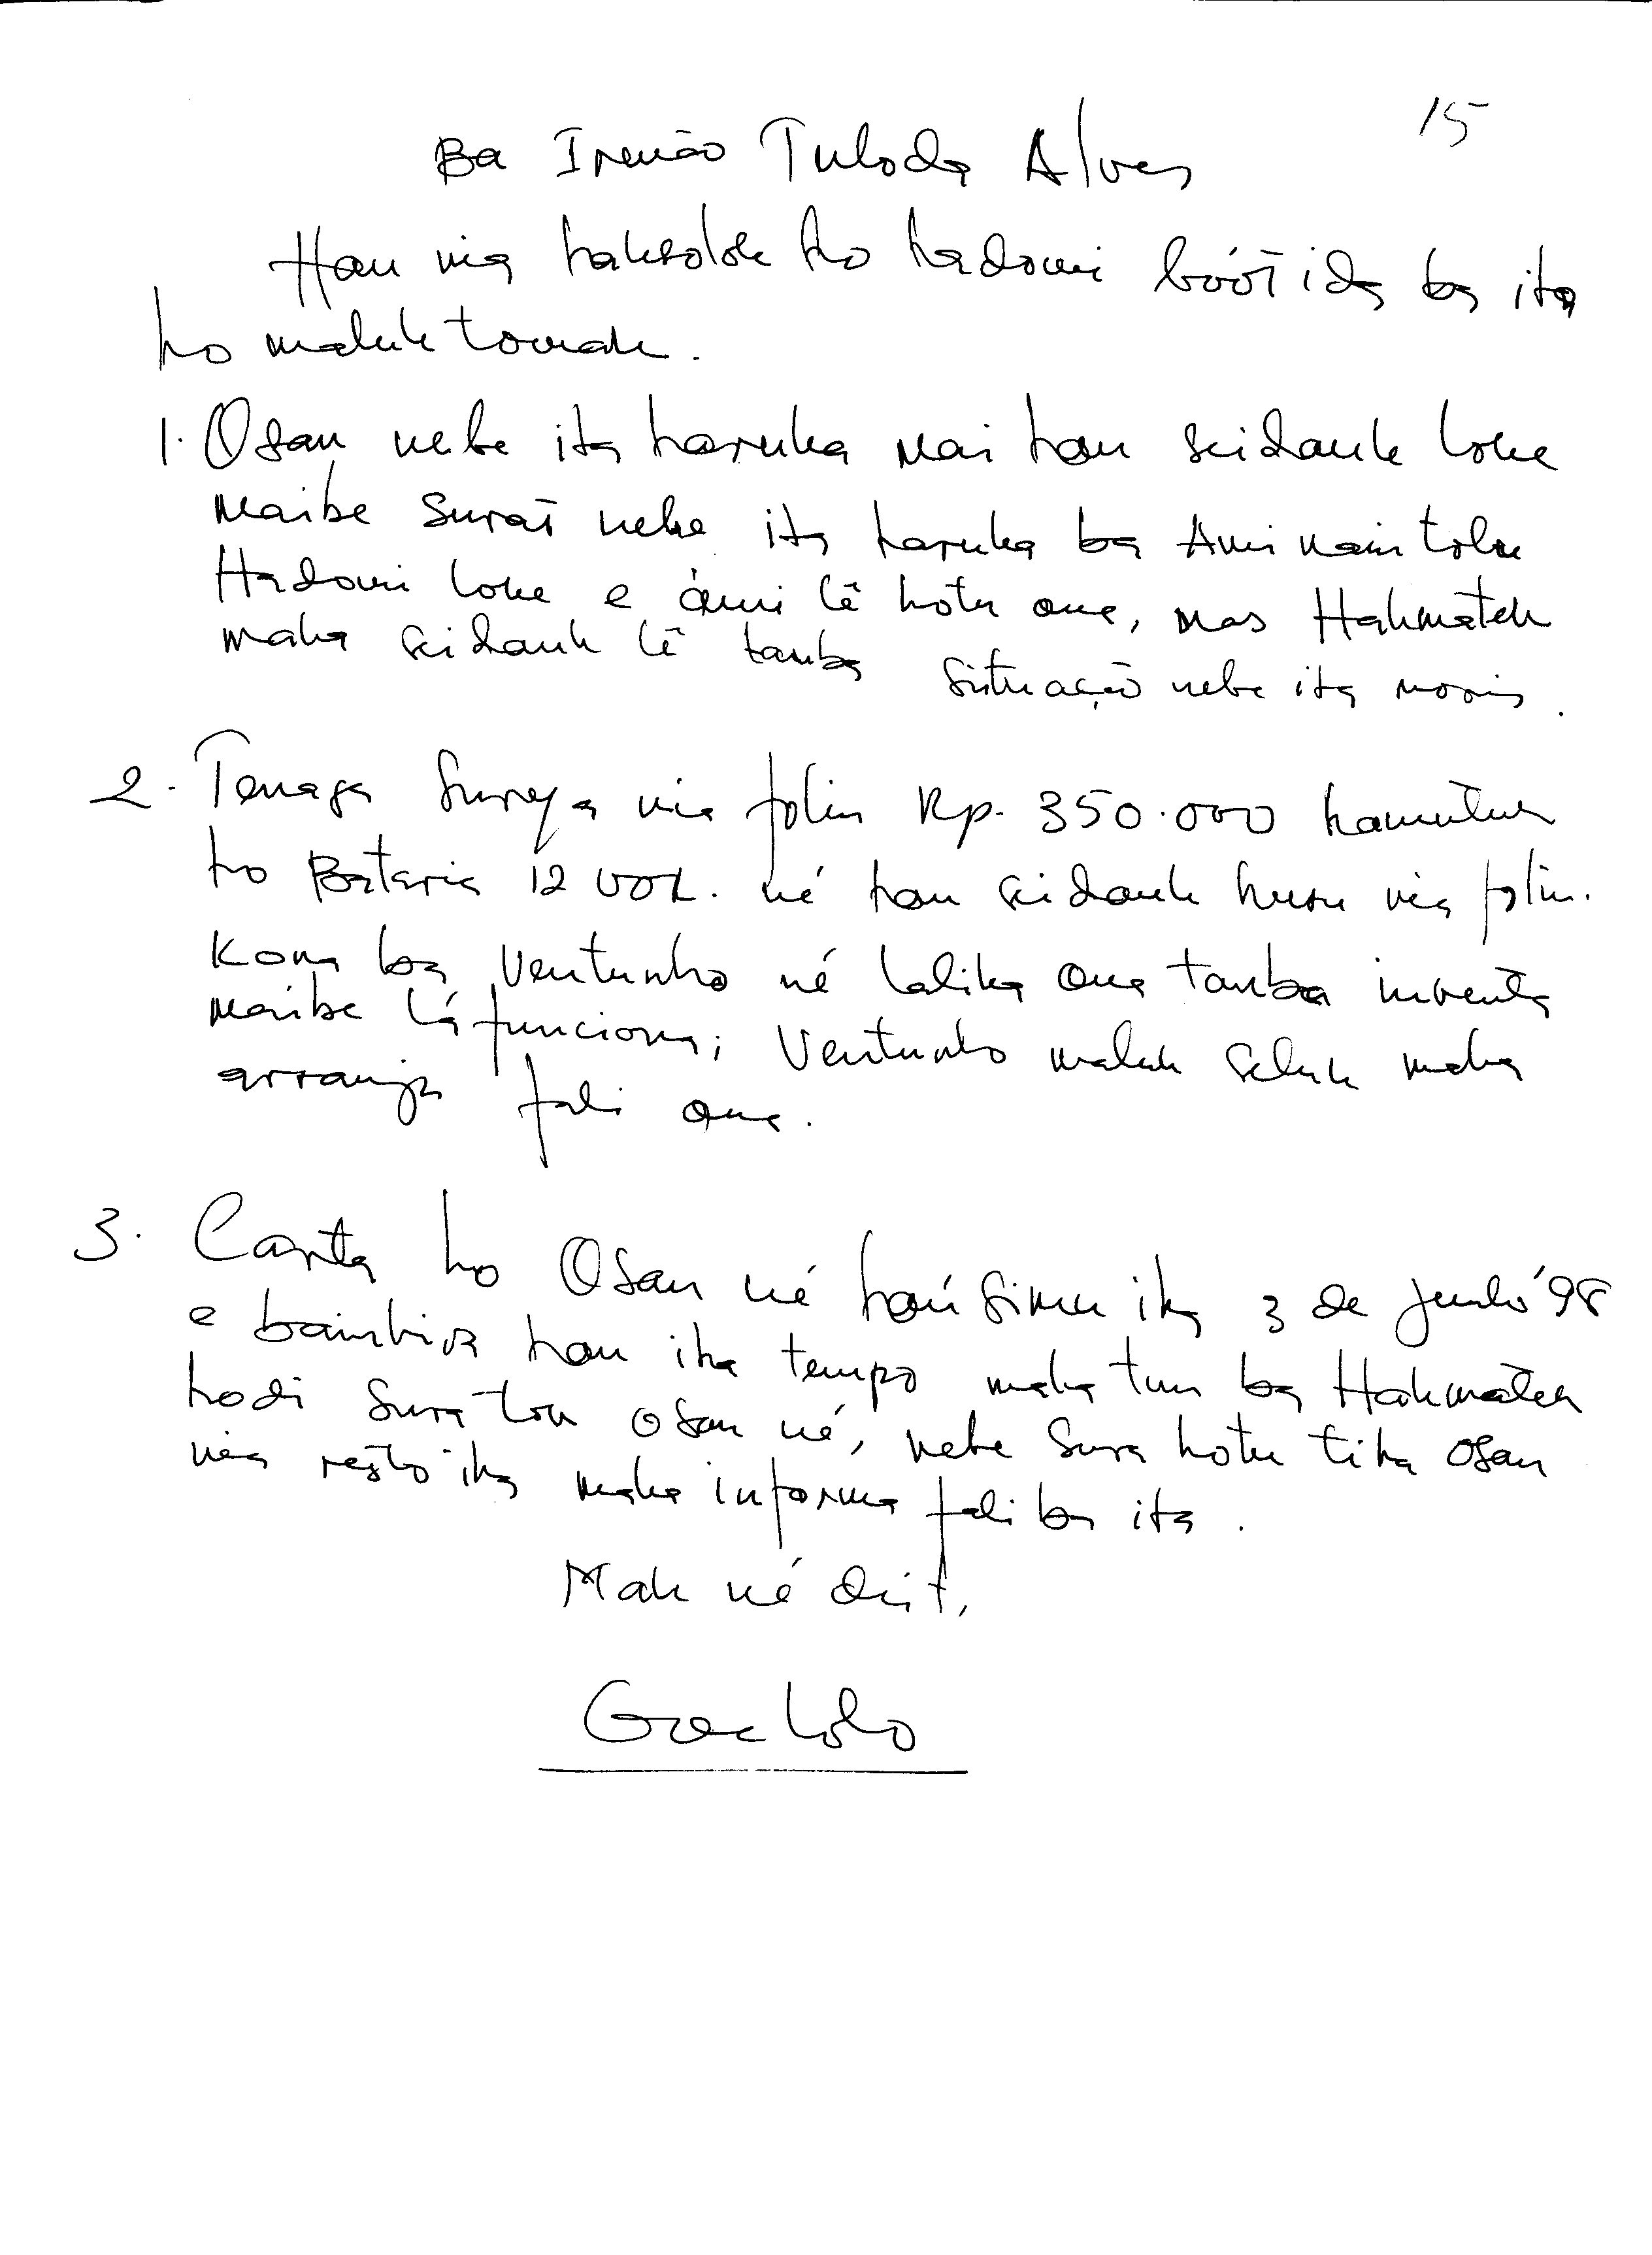 15
Ba Irmão Tuloda Alves
Hau nia haksolok ho hadomi bóót ida ba ita
ho maluk tomak.
1. Osan nebe ita haruka mai hau seidauk loke
maibe surat nebe ita haruka ba Ami nain tolu
Hadomi loke e ami lê hotu ona, mas Hakmatek
maka seidauk lê tamba situação nebe ita moris.
2. Tenaga Surya nia folin Rp. 350.000 hamutuk
ho Bataria 12 vol. né hau seidauk husu nia folin.
Kona ba Ventunho né lalika ona tamba inventa
maibe lá funciona; Ventunho maluk seluk maka
arranja fali ona.
3. Carta ho Osan né haú simu iha 3 de Junho '98
e bainhira hau iha tempo maka tun ba Hakmatek
hodi sura tou osan né, nebe sura hotu tiha osan
nia resto iha maka informa fali ba ita.
Mak né deit,